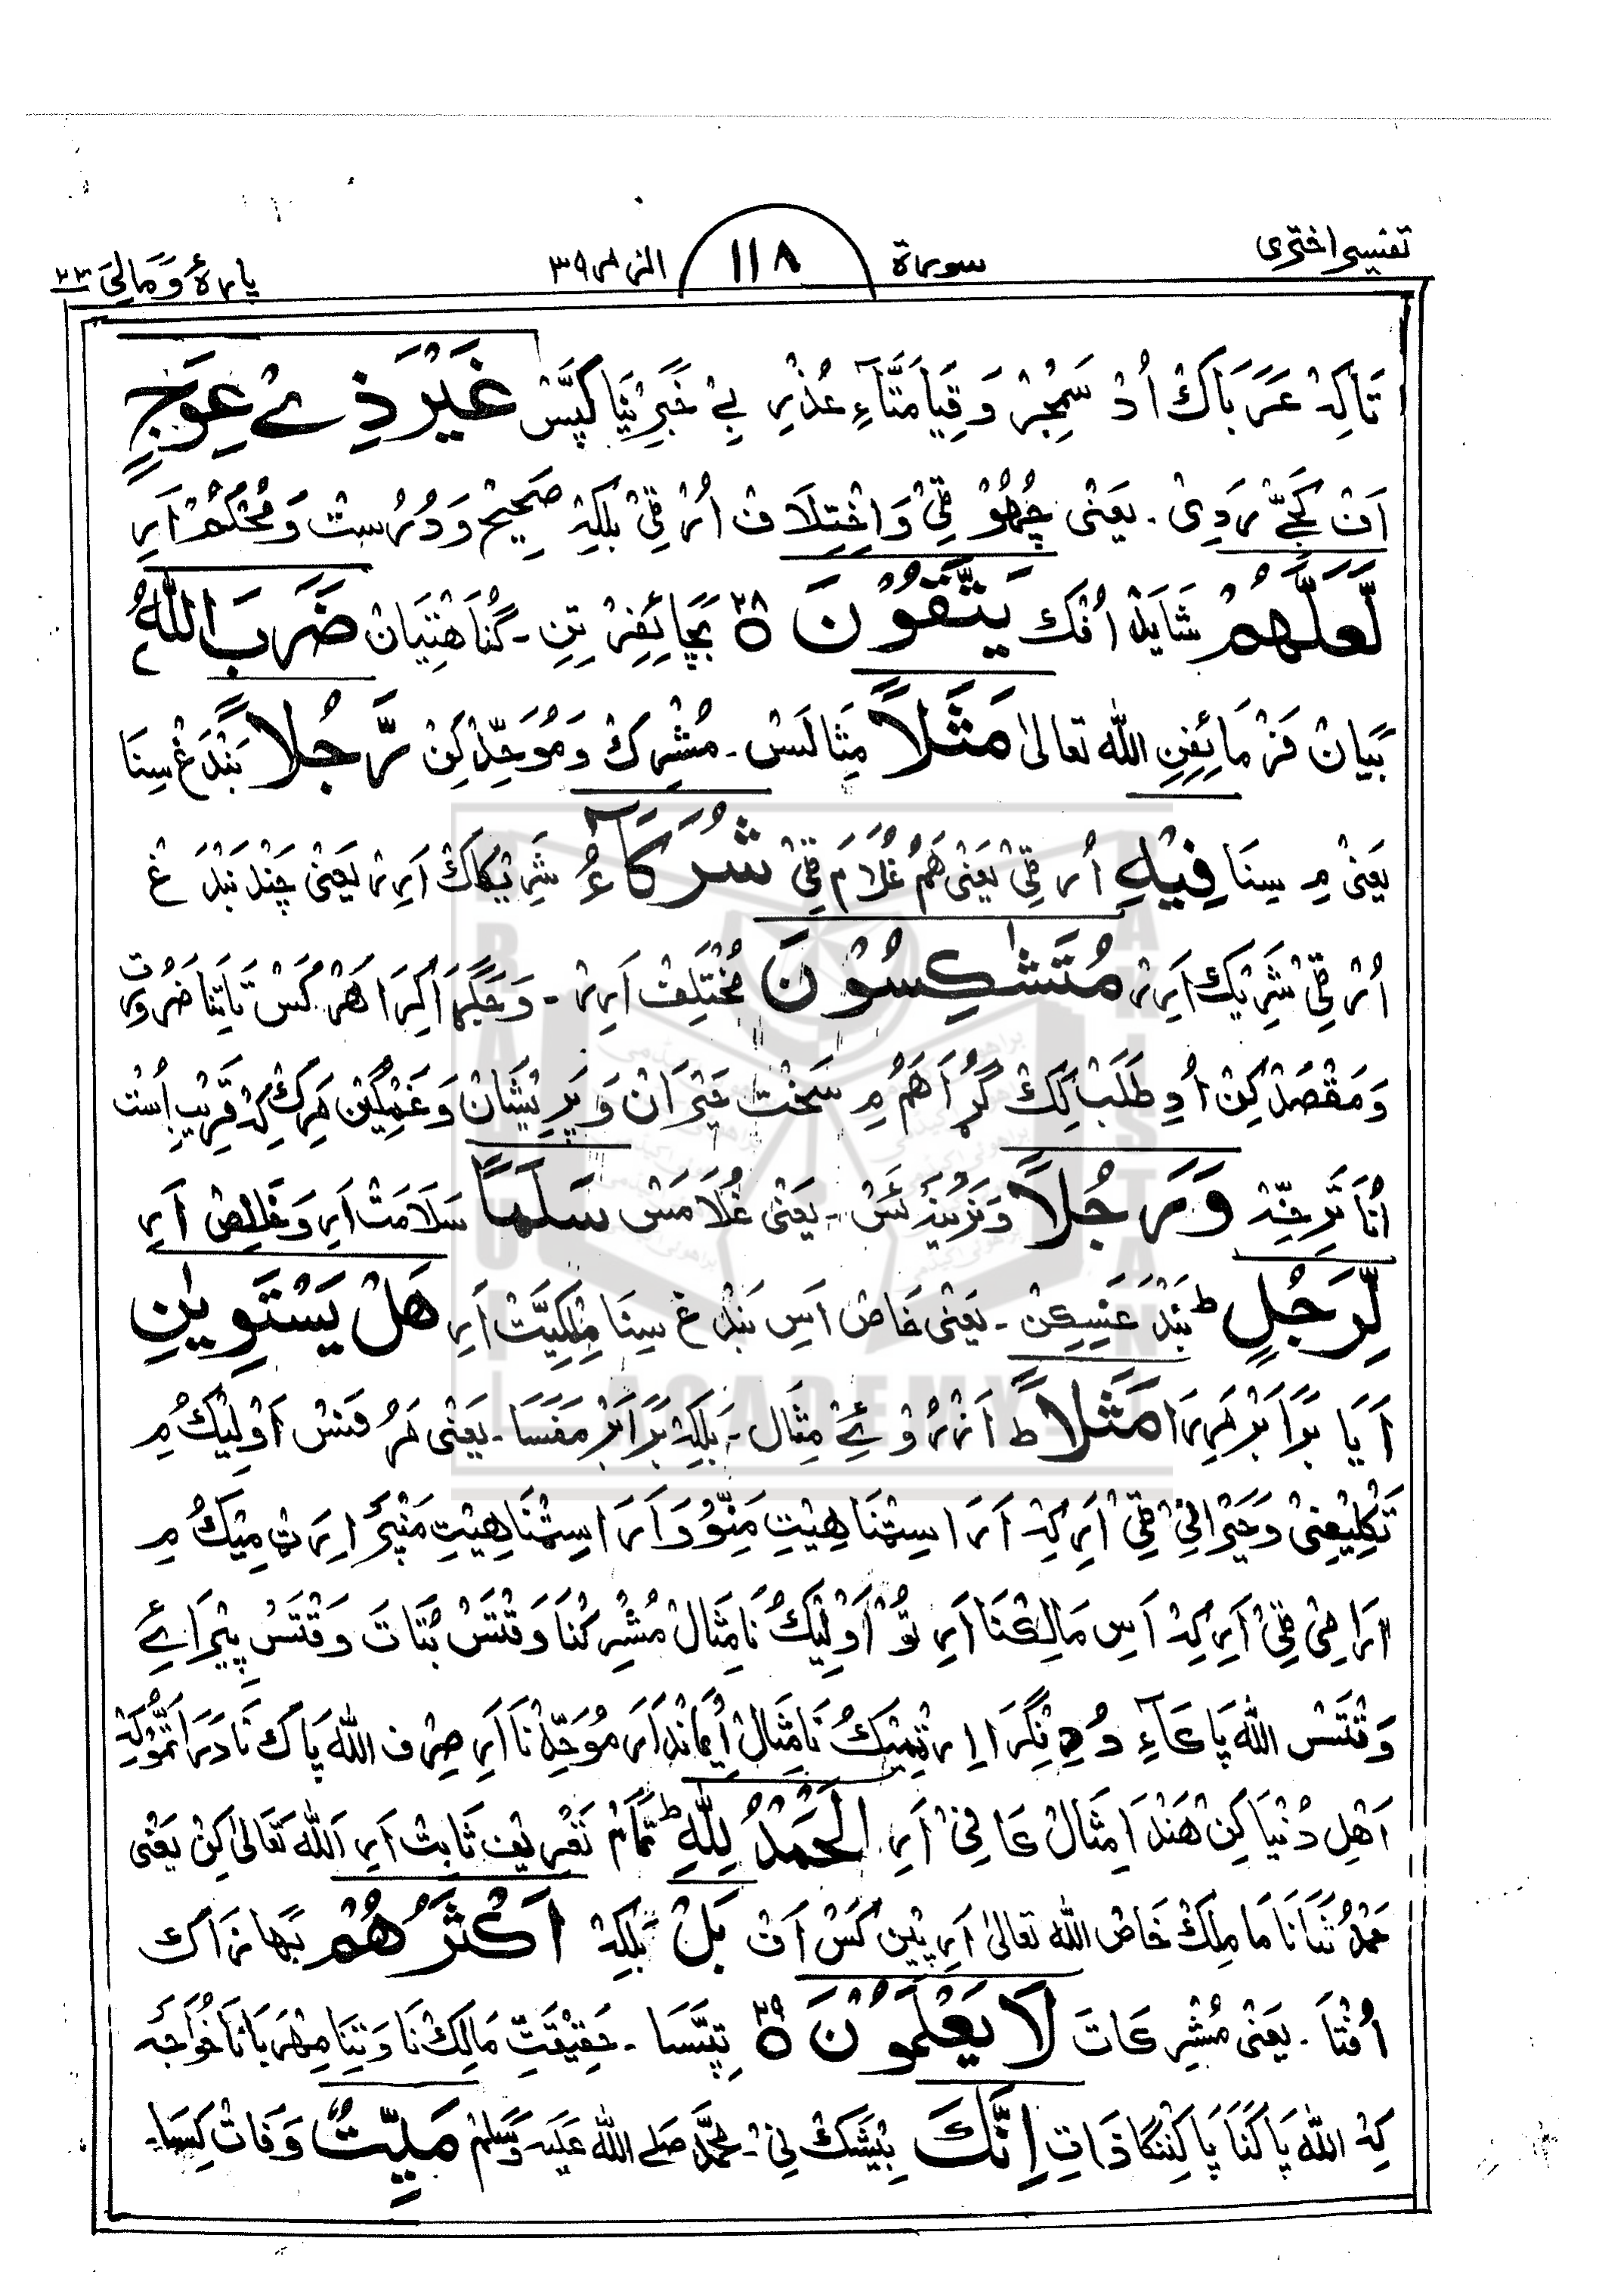 تفسیر اختری
سورة ١١٨ الزمر ٣٩
پارهٔ وَمَالِیَ ٢٣
تَاکِهْ عَرَبَاکْ اُدْ سَمْجِرْ وَ قِیَامَتَآءِ عُذْرِ بِےْ خَبَرِیْنَا کَپَّسْ غَیْرَ ذِیْ عِوَجٍ
اَفْ کَجِّےْ رَدِیْ ۔ یَعْنِیْ قِیْ وَ اِخْتِلَافْ اُرْ قِیْ بَلْکِهْ صَحِیْحْ وَ دُرُسْتْ وَ مُحْکَمْ اَرِ
لَّعَلَّهُمْ شَایَدْ اُفْکْ یَتَّقُوْنَ ٥ ٢٨ بَچَائِفِرْ تِنِ ۔ گُنَاهْتِیَانْ ضَرَبَ اللّٰهُ
بَیَانْ فَرْمَائِفِنِ اللّٰه تعالیٰ مَثَلًا مِثَالَسْ ۔ مُشْرِکْ وَ مُوَحِّدْ کِنْ رَّجُلًا بَنْدَغْ سِنَا
یَعْنِیْ مِ سِنَا فِیْهِ اُرْ قِیْ یَعْنِیْ هَمُ غُلَامَ قِیْ شُرَکَآءُ شَرِیْکَاکْ اَرِرْ یَعْنِیْ چَنْدْ بَنْدَغْ
اُرْ قِیْ شَرِیْکْ اَرِرْ مُتَشٰکِسُوْنَ مُخْتَلِفْ اَرِرْ ۔ وَ اَکِرَا هَرْ کَسْ تَاتِنَا ضَرُوْرَتْ
وَ مَقْصَدْ کِنْ اُدِ طَلَبْ کِکْ گُڑَا هَمُ مِ سَخْتْ حَیْرَانْ وَ پَرِیْشَانْ وَ غَمْگِیْنْ مَرِکْ کِهْ قَرِیْبِ اُسْتْ
اُنَا تَرِقِّهْ وَ رَجُلًا وَ نَرِیْنَهْ ئَسْ ۔ یَعْنِیْ غُلَامَسْ سَلَمًا سَلَامَتْ اَرِ وَ خَالِصْ اَرِ
لِّرَجُلٍ ط بَنْدَغَسِکِنْ ۔ یَعْنِیْ خَاصْ اَسِ بَنْدَغْ سِنَا مِلْکِیَّتْ اَرِ هَلْ یَسْتَوِیٰنِ
اَیَا بَرَابَرْ مَرِرَا مَثَلًا ط اَزْ رُوْئِےْ مِثَالْ ۔ بَلْکِهْ بَرَابَرْ مَفَسَا ۔ یَعْنِیْ هَرُ وَقْتَسْ اَوْلِیْکُ مِ
تَکْلِیْفِیْ وَ حَیْرَانِیْ قِیْ اَرِ کِهْ اَرَا اِسِتْنَا هِیْتِ مَنِّوْ وَ اَرَا اِسِتْنَا هِیْتِ مَنْپَرْ اِرَتْمِیْکُ مِ
اَرَامِیْ قِیْ اَرِ کِهْ اَسِ مَالِکْنَا اَرِ تُوْ اَوْلِیْکُ نَا مِثَالْ مُشْرِکْنَا وَقْتَسْ بُتَاتَ وَقْتَسْ پِیْرَائِےْ
وَقْتَسْ اللّٰه پَاکَآءِ دُوِ نِگِرَا اِرَتْمِیْکُ نَا مِثَالْ اِیْمَانْدَارَ مُوَحِّدْنَا اَرِ صِرْف اللّٰه پَاکْ نَا دَرَا تَمُّوْکِهْ
اَهْلِ دُنْیَا کِنْ هَنْدَا مِثَالْ کَافِیْ اَرِ. اَلْحَمْدُ لِلّٰهِ ط تَمَامْ تَعْرِیْف ثَابِتْ اَرِ اَللّٰه تَعَالیٰ کِنْ یَعْنِیْ
حَمْدُ ثَنَانَا مَالِکْ خَاصْ اللّٰه تعالیٰ اَرِ پِیْنِ کَسْ اَفْ بَلْ بَلْکِهْ اَکْثَرُهُمْ بَهَازَاکْ
اُفْتَا ۔ یَعْنِیْ مُشْرِکَاتَ لَا یَعْلَمُوْنَ ٥ ٢٩ تِپَّسَا ۔ حَقِیْقَتِ مَالِکْنَا وَ تِنَا مِهْرَبَانَا خُوَاجَه
کِهْ اللّٰه پَاکْنَا پَاکِنْگَا ذَاتِ اِنَّکَ بِیْشَکْ نِیْ ۔ مُحَمَّدْ صَلَے اللّٰه عَلَیْه وَسَلَّمْ مَیِّتٌ وَفَاتْ کِسَاءِ